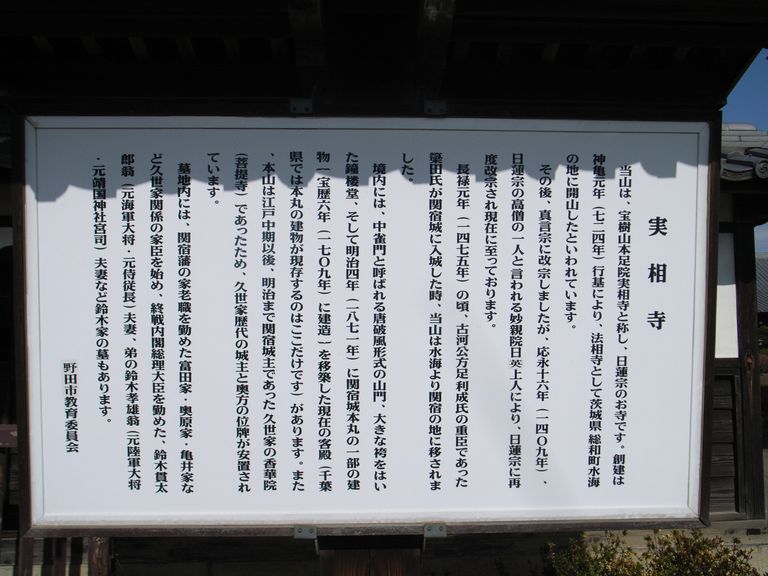 実相寺
当山は、宝樹山本足院実相寺と称し、日蓮宗のお寺です。創建は
神亀元年（七二四年）行基により、法相寺として茨城県総和町水海
の地に開山したといわれています。
その後、真言宗に改宗しましたが、応永十六年（一四〇九年）、
日蓮宗の高僧の一人と言われる妙親院日英上人により、日蓮宗に再
度改宗され現在に至っております。
長禄元年（一四七五年）の頃、古河公方足利成氏の重臣であった
簗田氏が関宿城に入城した時、当山は水海より関宿の地に移されま
した。
境内には、中雀門と呼ばれる唐破風形式の山門、大きな袴をはい
た鐘楼堂、そして明治四年（一八七一年）に関宿城本丸の一部の建
物（宝歴六年（一七〇九年）に建造）を移築した現在の客殿（千葉
県では本丸の建物が現存するのはここだけです）があります。また
、本山は江戸中期以後、明治まで関宿城主であった久世家の香華院
（菩提寺）であったため、久世家歴代の城主と奥方の位牌が安置され
ています。
墓地内には、関宿藩の家老職を勤めた富田家・奥原家・亀井家な
ど久世家関係の家臣を始め、終戦内閣総理大臣を勤めた、鈴木貫太
郎翁（元海軍大将・元侍従長）夫妻、弟の鈴木孝雄翁（元陸軍大将
・元靖国神社宮司）夫妻など鈴木家の墓もあります。
野田市教育委員会